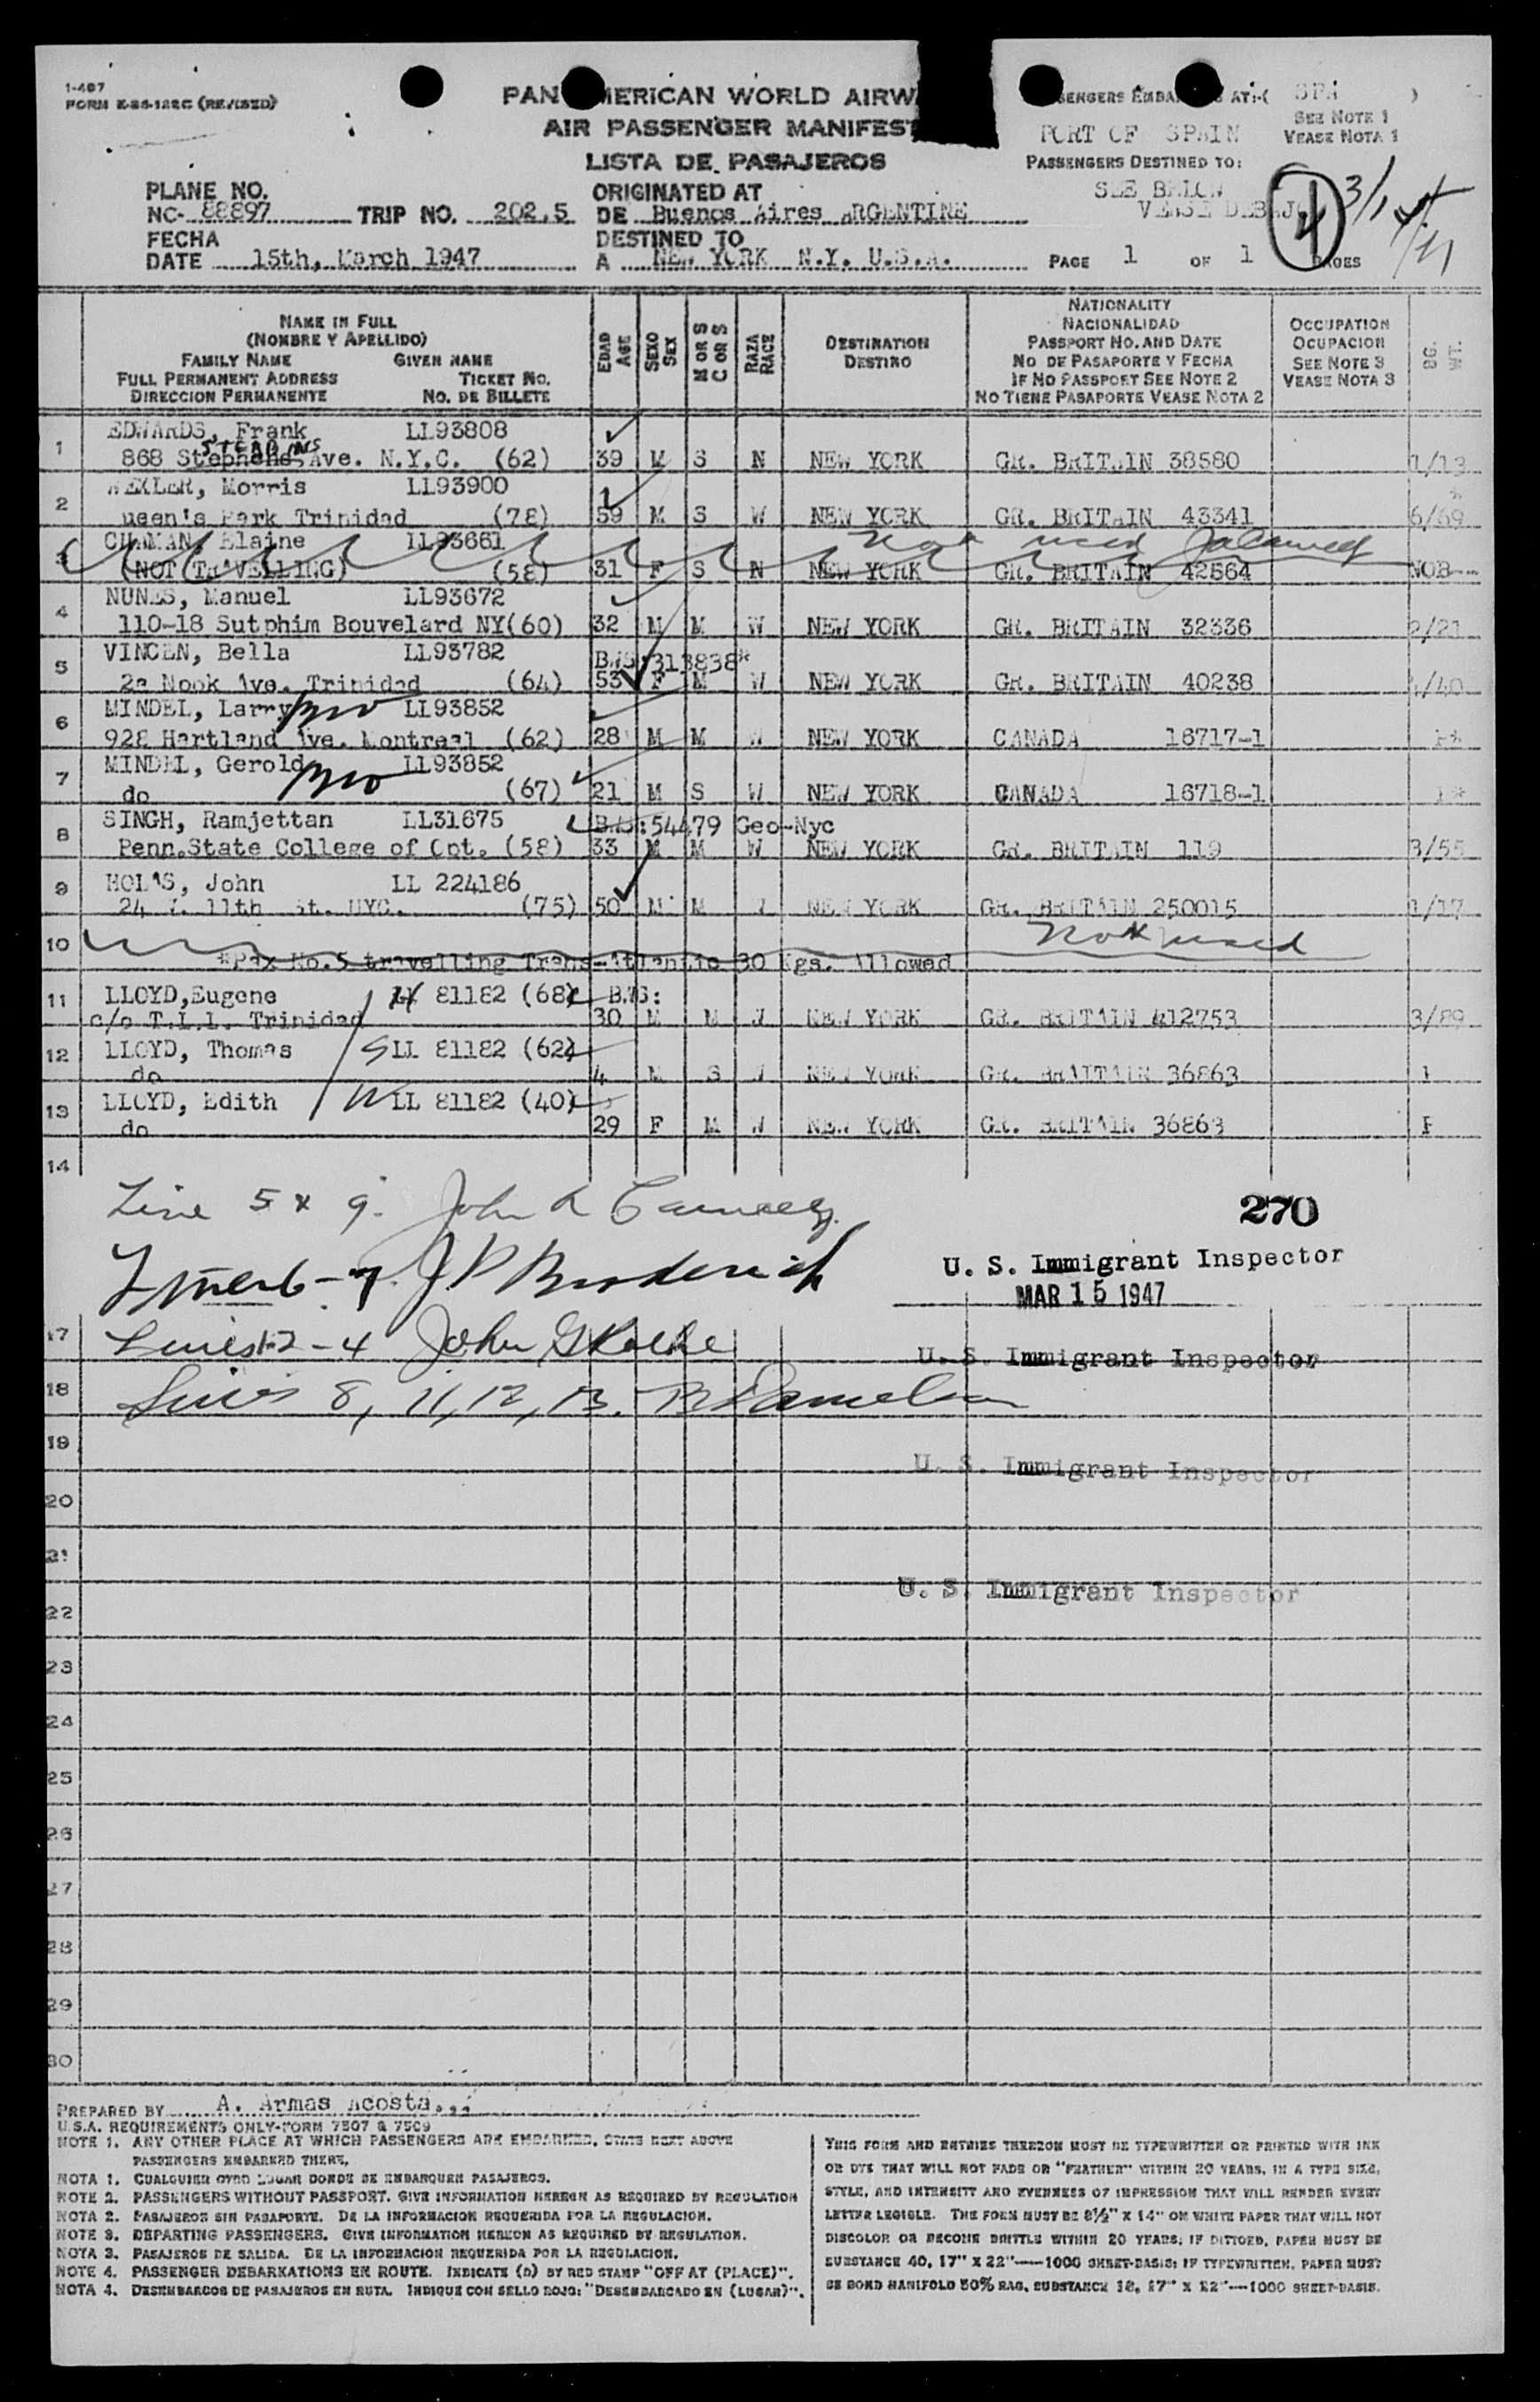 1-487
FORM E-86-122C (REVISED)
PAN AMERICAN WORLD AIRW
AIR PASSENGER MANIFEST
LISTA DE PASAJEROS
SENGERS EMBA AT:(
)
PORT OF SPAIN
SEE NOTE 1
VEASE NOTA 1
PASSENGERS DESTINED TO:
SEE BELOW
4
PLANE NO.
NC- 88897 TRIP NO. 202.5
ORIGINATED AT
DE Buenos Aires ARGENTINE
FECHA
DATE 15th, March 1947
DESTINED TO
A NEW YORK N.Y. U.S.A.
PAGE 1 OF 1 PAGES
NAME IN FULL
(NOMBRE Y APELLIDO)
FAMILY NAME GIVEN NAME
FULL PERMANENT ADDRESS TICKET NO.
DIRECCION PERMANENTE NO. DE BILLETE
EDAD AGE
SEXO SEX
M OR S
C OR S
RAZA RACE
DESTINATION
DESTINO
NATIONALITY
NACIONALIDAD
PASSPORT NO. AND DATE
NO DE PASAPORTE Y FECHA
IF NO PASSPORT SEE NOTE 2
NO TIENE PASAPORTE VEASE NOTA 2
OCCUPATION
OCUPACION
SEE NOTE 3
VEASE NOTA 3
BG. WT.
1 EDWARDS, Frank LL93808
STEBBINS
868 Stephens Ave. N.Y.C. (62) 39 M S N NEW YORK GR. BRITAIN 38580 1/13
2 WEXLER, Morris LL93900
ueen's Park Trinidad (78) 59 M S W NEW YORK GR. BRITAIN 43341 6/69
3 Elaine LL93661 not used
(NOT TRAVELLING) (58) 31 F S N NEW YORK GR. BRITAIN 42564 NOB
4 NUNES, Manuel LL93672
110-18 Sutphim Bouvelard NY(60) 32 M M W NEW YORK GR. BRITAIN 32336 2/21
5 VINCEN, Bella LL93782 B.WS:313838*
2a Nook Ave. Trinidad (64) 53 F M W NEW YORK GR. BRITAIN 40238 4/40
6 MINDEL, Larry LL93852
928 Hartland Ave. Montreal (62) 28 M M W NEW YORK CANADA 16717-1
7 MINDEL, Gerold LL93852
do (67) 21 M S W NEW YORK CANADA 16718-1
8 SINGH, Ramjettan LL31675 B.WS:54479 Geo-Nyc
Penn.State College of Opt. (58) 33 M M W NEW YORK GR. BRITAIN 119 3/55
9 HOLAS, John LL 224186
24 W. 11th St. NYC. (75) 50 M M W NEW YORK GR. BRITAIN 250015 1/17
10 not used
*Pax No.5 travelling Trans-Atlantic 30 Kgs. Allowed
11 LLOYD,Eugene 81182 (68) B.WS:
c/o T.L.L. Trinidad 30 M M W NEW YORK GR. BRITAIN 412753 3/89
12 LLOYD, Thomas LL 81182 (62)
do 4 M S W NEW YORK GR. BRITAIN 36863
13 LLOYD, Edith LL 81182 (40)
do 29 F M W NEW YORK GR. BRITAIN 36863 F
14
Line 5 & 9.
270
J P Broderick
U. S. Immigrant Inspector
MAR 15 1947
17 Lines 1-2-4 John
U. S. Immigrant Inspector
18 Lines 8, 11, 12, 13.
19
U. S. Immigrant Inspector
20
21
U. S. Immigrant Inspector
22
23
24
25
26
27
28
29
30
PREPARED BY A. Armas Acosta
U.S.A. REQUIREMENTS ONLY-FORM 7507 & 7509
NOTE 1. ANY OTHER PLACE AT WHICH PASSENGERS ARE EMBARKED, STATE NEXT ABOVE
PASSENGERS EMBARKED THERE.
NOTA 1. CUALQUIER OTRO LUGAR DONDE SE EMBARQUEN PASAJEROS.
NOTE 2. PASSENGERS WITHOUT PASSPORT. GIVE INFORMATION HEREON AS REQUIRED BY REGULATION
NOTA 2. PASAJEROS SIN PASAPORTE. DE LA INFORMACION REQUERIDA POR LA REGULACION.
NOTE 3. DEPARTING PASSENGERS. GIVE INFORMATION HEREON AS REQUIRED BY REGULATION.
NOTA 3. PASAJEROS DE SALIDA. DE LA INFORMACION REQUERIDA POR LA REGULACION.
NOTE 4. PASSENGER DEBARKATIONS EN ROUTE. INDICATE (D) BY RED STAMP "OFF AT (PLACE)".
NOTA 4. DESEMBARCOS DE PASAJEROS EN RUTA. INDIQUE CON SELLO ROJO: "DESEMBARCADO EN (LUGAR)".
THIS FORM AND ENTRIES THEREON MUST BE TYPEWRITTEN OR PRINTED WITH INK
OR DYE THAT WILL NOT FADE OR "FEATHER" WITHIN 20 YEARS, IN A TYPE SIZE,
STYLE, AND INTENSITY AND EVENNESS OF IMPRESSION THAT WILL RENDER EVERY
LETTER LEGIBLE. THE FORM MUST BE 8½" X 14" ON WHITE PAPER THAT WILL NOT
DISCOLOR OR BECOME BRITTLE WITHIN 20 YEARS; IF DITTOED, PAPER MUST BE
SUBSTANCE 40, 17" X 22"—1000 SHEET-BASIS; IF TYPEWRITTEN, PAPER MUST
BE BOND MANIFOLD 50% RAG, SUBSTANCE 18, 17" X 22"—1000 SHEET-BASIS.